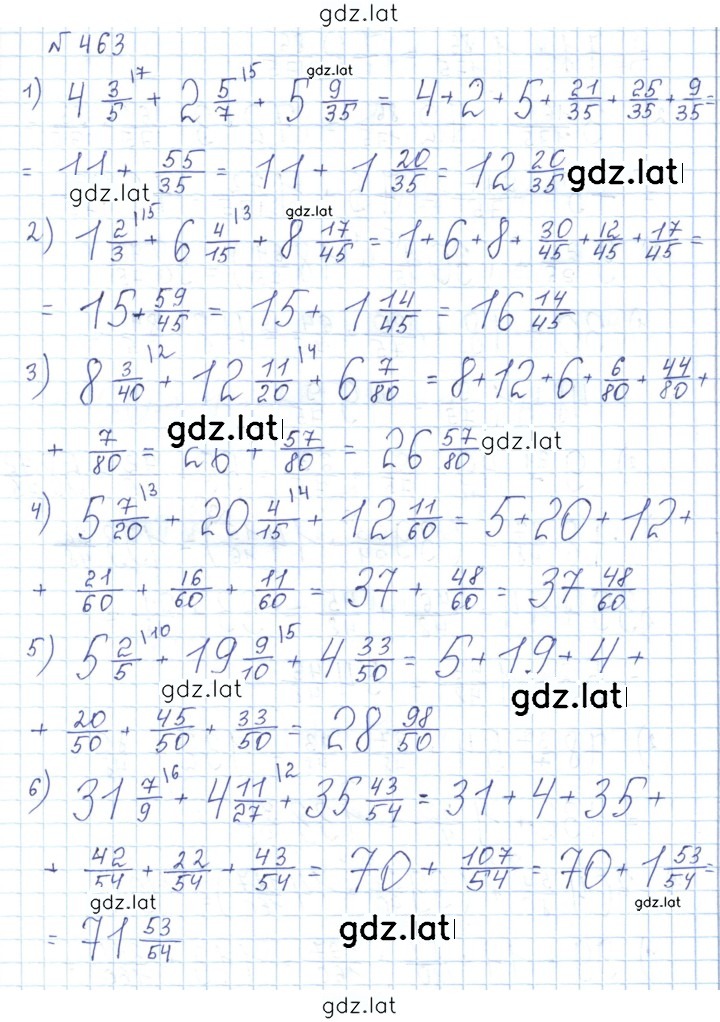 gdz.lat
№ 463
gdz.lat
1) 4 3/5 |7 + 2 5/7 |5 + 5 9/35 = 4+2+5+ 21/35 + 25/35 + 9/35 =
= 11 + 55/35 = 11 + 1 20/35 = 12 20/35 gdz.lat
gdz.lat
gdz.lat
2) 1 2/3 |15 + 6 4/15 |3 + 8 17/45 = 1+6+8+ 30/45 + 12/45 + 17/45 =
= 15 + 59/45 = 15 + 1 14/45 = 16 14/45
3) 8 3/40 |2 + 12 11/20 |4 + 6 7/80 = 8+12+6+ 6/80 + 44/80 +
gdz.lat
+ 7/80 = 26 + 57/80 = 26 57/80 gdz.lat
4) 5 7/20 |3 + 20 4/15 |4 + 12 11/60 = 5+20+12+
+ 21/60 + 16/60 + 11/60 = 37 + 48/60 = 37 48/60
5) 5 2/5 |10 + 19 9/10 |5 + 4 33/50 = 5+19+4+
gdz.lat gdz.lat
+ 20/50 + 45/50 + 33/50 = 28 98/50
6) 31 7/9 |6 + 4 11/27 |2 + 35 43/54 = 31+4+35+
+ 42/54 + 22/54 + 43/54 = 70 + 107/54 = 70 + 1 53/54 =
gdz.lat gdz.lat
= 71 53/54 gdz.lat
gdz.lat